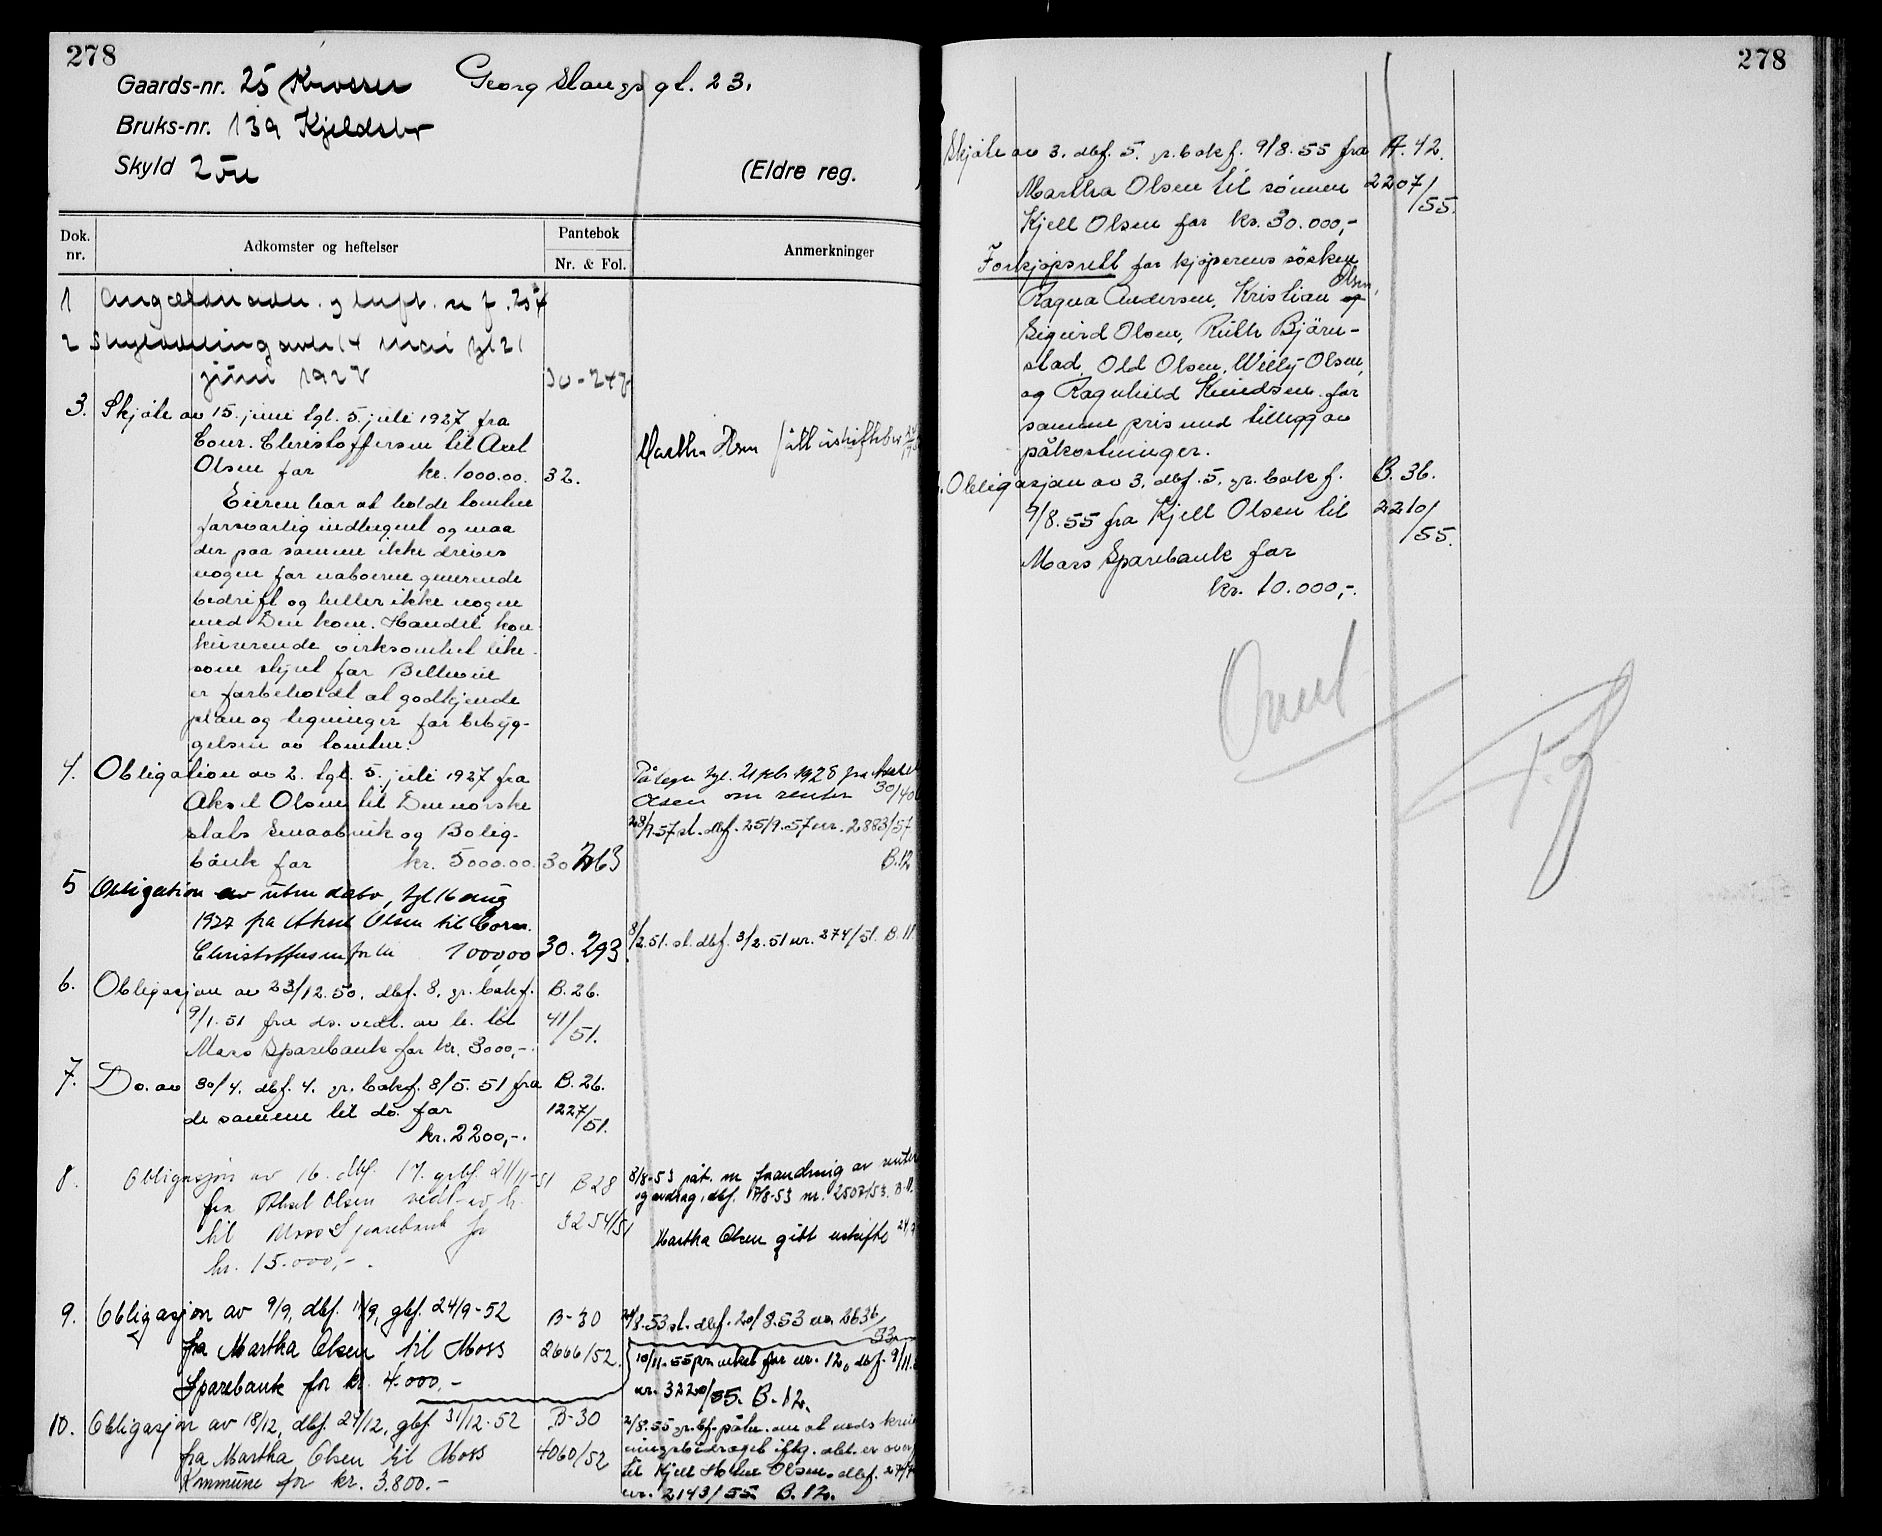 278
Gaards-nr. 25 Krosser Georg Stangs gt. 23.
Bruks-nr. 139 Kjeldsbo
Skyld 2 öre (Eldre reg.
Dok. nr. Adkomster og heftelser Pantebok Nr. & Fol. Anmerkninger
1
2 Skylddeling avh 14 mai tgl 21
juni 1927 30-247
3. Skjøte av 15. juni tgl. 5. juli 1927 fra
Cour. Christoffersen til Axel
Olsen for kr. 1000.00. 32.
Martha Olsen
Eieren har at holde tomten
forsvarlig indhegnet og maa
der paa samme ikke drives
nogen for naboerne generende
bedrift og heller ikke nogen
med Den kom. Handel kon-
kurerende virksomhet like-
som styret for Bellevue
er forbeholdt at godkjende
plan og tegninger for bebyg-
gelsen av tomten.
4. Obligation av 2. tgl. 5. juli 1927 fra
Aksel Olsen til Den norske
stats Smaabruk og Bolig-
bank for kr. 5000.00. 30 263
Påtegn tgl. 21 feb 1928 fra Aksel
Olsen om renter 30/40
28/9.57 sl. dbf. 25/9.57 nr. 2883/57
B.12
5 Obligation av uten dato, tgl 16 aug
1927 fra Aksel Olsen til Corn.
Christoffersen for kr 1000,00 30. 293.
8/2.51. sl. dbf. 3/2.51 nr. 274/51. B. 11.
6. Obligasjon av 23/12.50. dbf. 8. gr. bokf. B. 26.
9/1.51 fra ds. vedt. av h. til 41/51.
Moss Sparebank for kr. 3000,-.
7. Do. av 30/4. dbf. 4. gr. bokf. 8/5.51 fra B. 26.
de samme til do. for 1227/51.
kr. 2200,-.
8. Obligasjon av 16. dbf. 17. grbf. 21/11-51 B 28
fra Aksel Olsen vedt. av h. 3254/51
til Moss Sparebank for
kr. 15.000,-.
8/8-53 påt. m forandring av renter
og avdrag, dbf. 17/8-53 nr. 2507/53. B. 11.
Martha Olsen gitt uskifte
9. Obligasjon av 9/9, dbf. 11/9, gbf. 24/9-52 B-30
fra Martha Olsen til Moss 2666/52.
Sparebank for kr. 4.000,-
24/8.53 sl. dbf. 20/8.53 nr. 2636/53
10/11-55 pr. veket for nr. 12, dbf. 9/11.
nr. 3220/55. B. 12.
10. Obligasjon av 18/12, dbf. 27/12, gbf. 31/12-52 B-30
fra Martha Olsen til Moss 4060/52
Kommune for kr. 3.800.-
2/8.55 gr.bf. påtn. om at nedskriv
ningsbidraget iflg. obl. er over
til Kjell Olsen. dbf.
nr. 2143/55. B. 12.
278
Skjøte av 3. dbf. 5. gr. bokf. 9/8.55 fra A. 42.
Martha Olsen til sønnen 2207/55.
Kjell Olsen for kr. 30.000,-
Forkjøpsrett for kjøperens søsken
Ragna Andersen, Kristian Olsen,
Sigurd Olsen, Ruth Bjørn-
stad, Odd Olsen, Willy Olsen,
og Ragnhild Knudsen for
samme pris med tillegg av
påkostninger.
Obligasjon av 3. dbf. 5. gr. bokf. B. 36.
9/8.55 fra Kjell Olsen til 2210/55.
Moss Sparebank for
kr. 10.000,-.